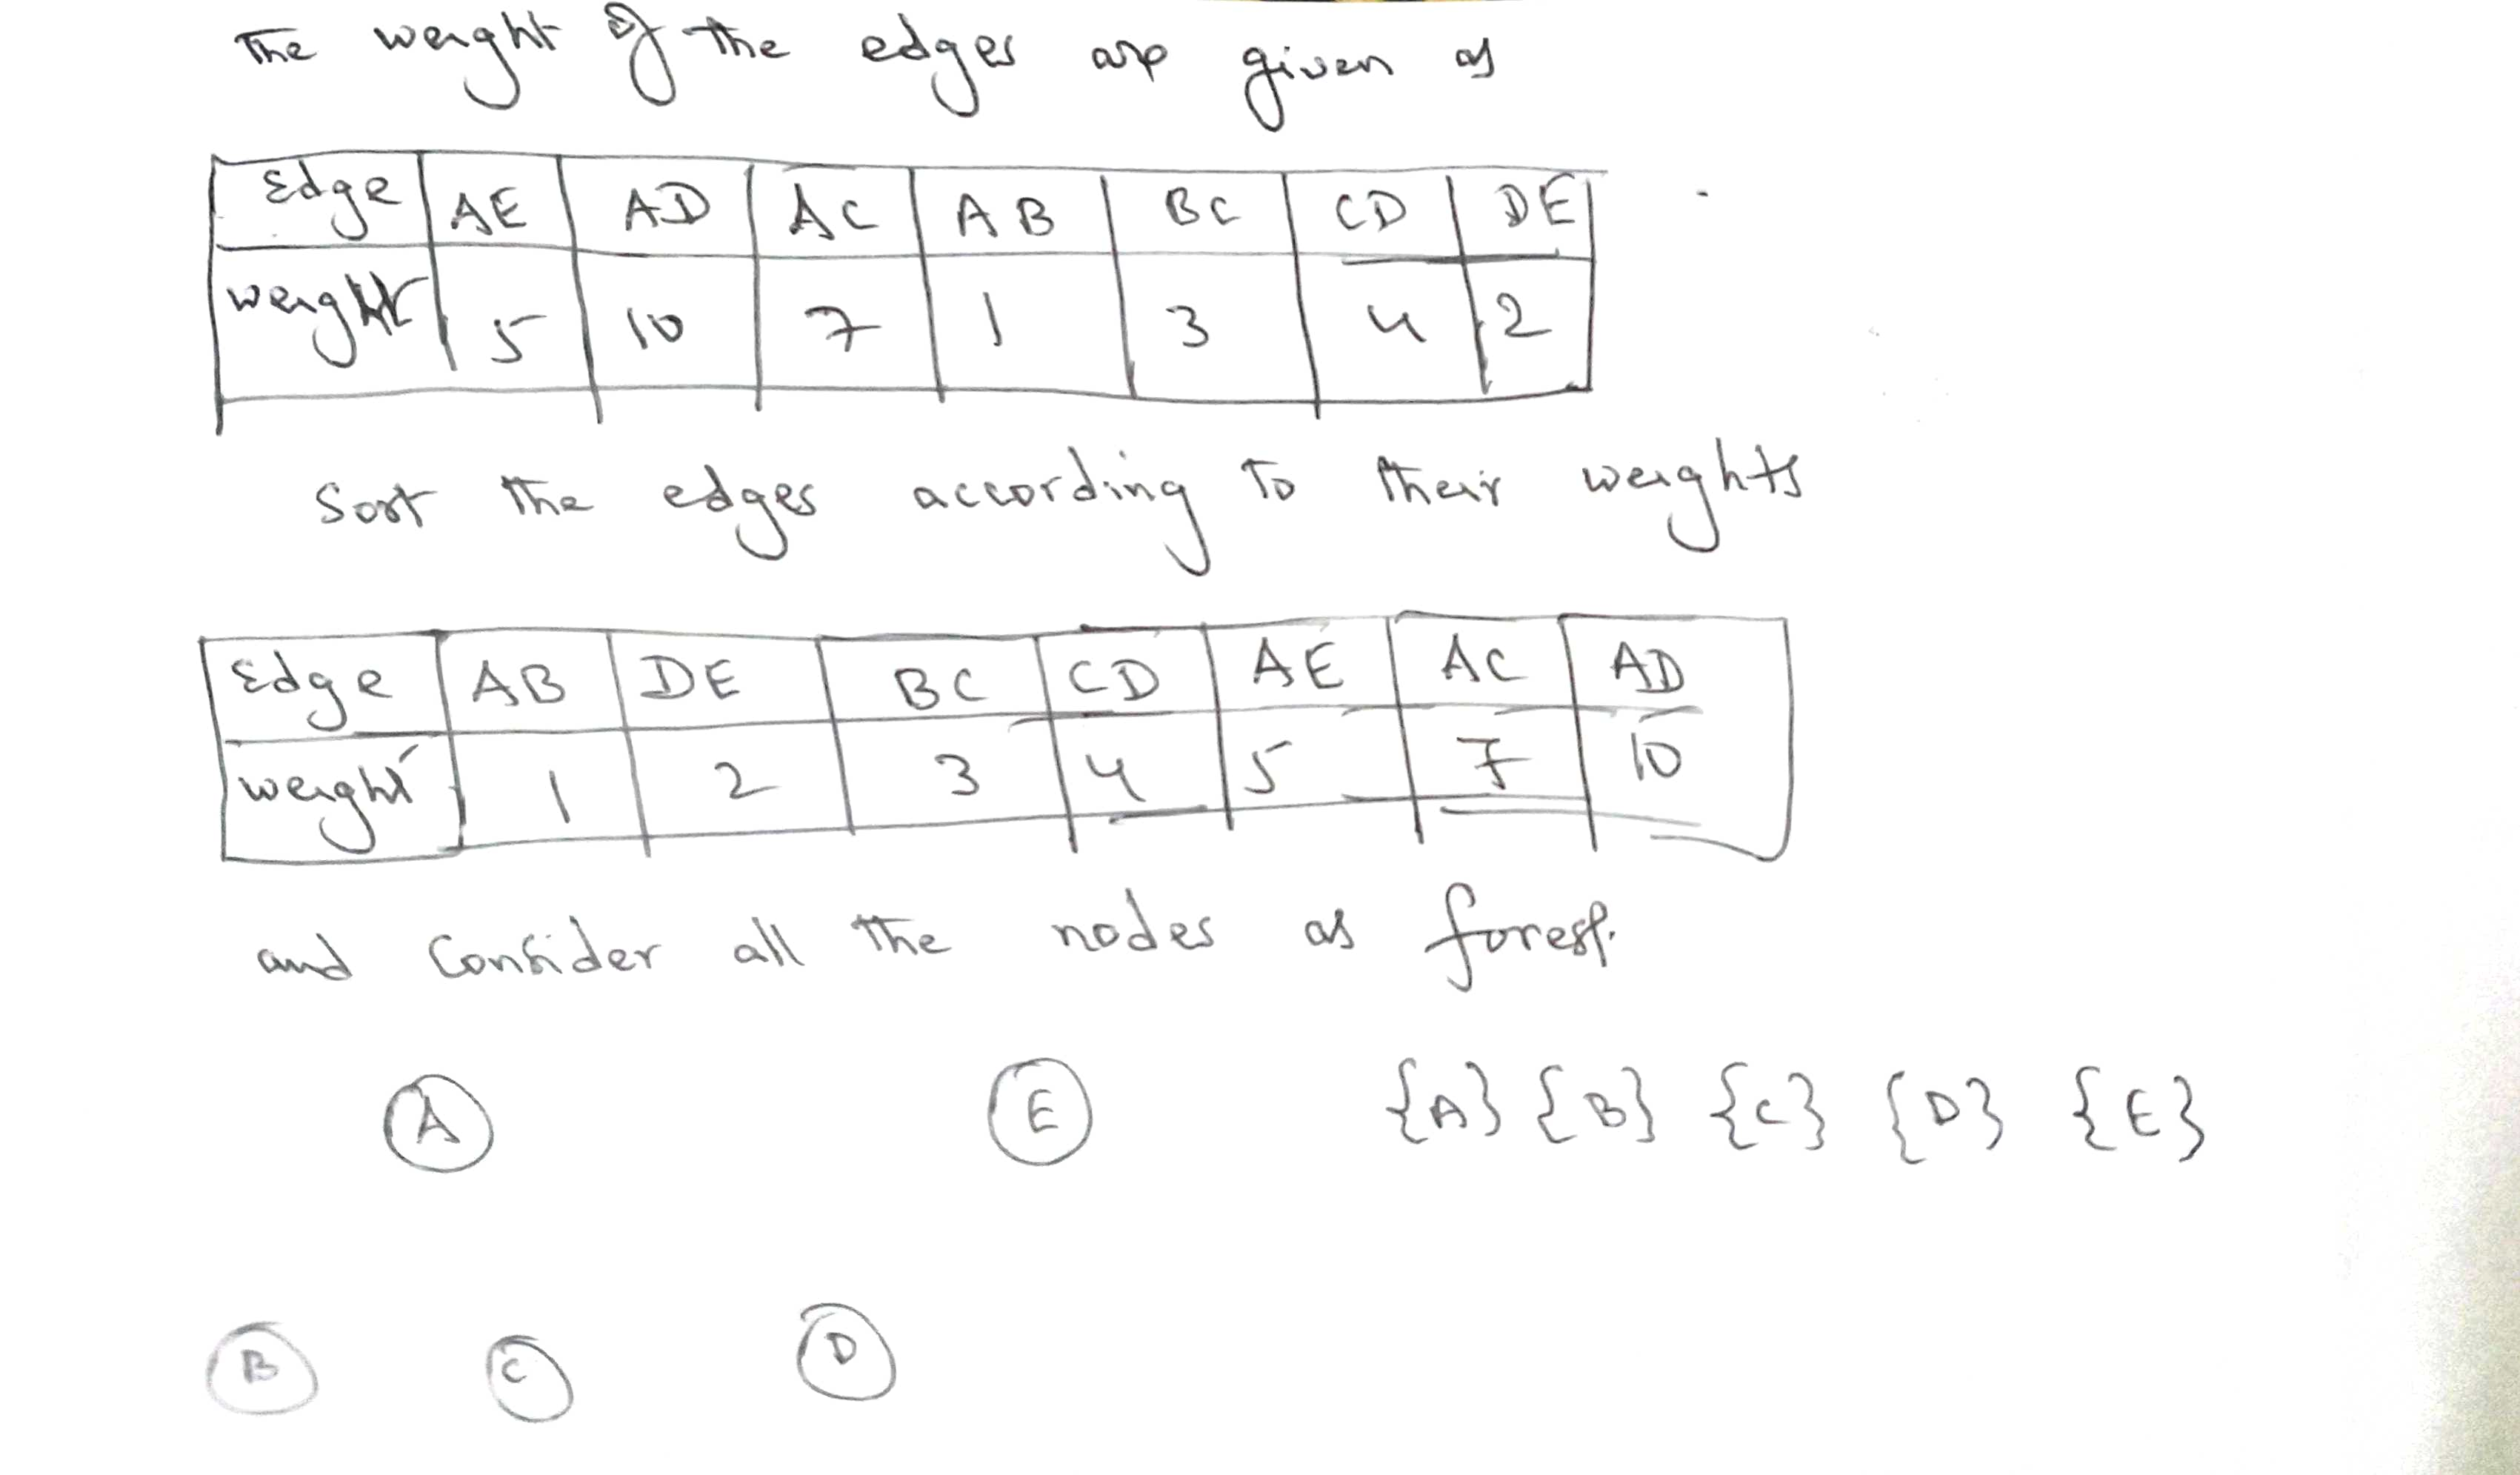 The weight of the edges are given as
Edge AE AD AC AB BC CD DE
weight 5 10 7 1 3 4 2
Sort the edges according to their weights
Edge AB DE BC CD AE AC AD
weight 1 2 3 4 5 7 10
and Consider all the nodes as forest.
A E {A} {B} {C} {D} {E}
B C D